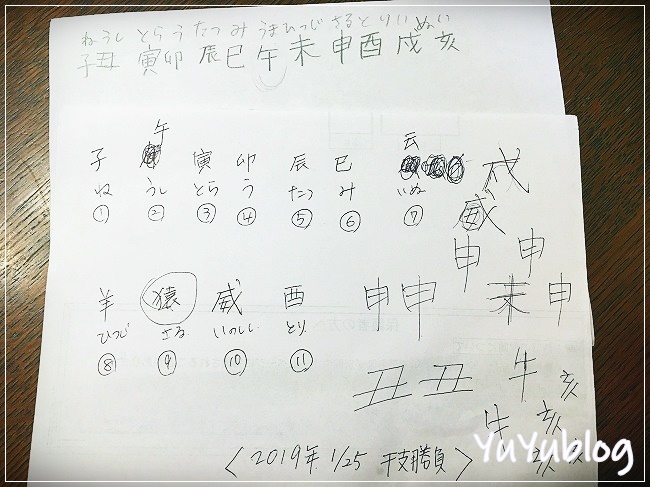 ねうし とら う たつ み うま ひつじ さる とり いぬ い
子丑 寅卯 辰巳 午 未 申酉 戌亥
午
子 寅 卯 辰 巳 云 戌
ね うし とら う たつ み いぬ 威
① ② ③ ④ ⑤ ⑥ ⑦
申 申
羊 猿 威 酉 申申 未 申
ひつじ さる いのしし とり
⑧ ⑨ ⑩ ⑪
丑 丑 牛 亥
牛 亥
亥
〈2019年 1/25 干支勝負〉
YuYublog